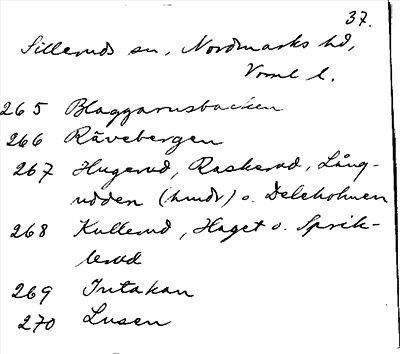 37.
Silleruds sn, Nordmarks hd,
Vrml l.
265 Blaggarnsbacken
266 Rävebergen
267 Hugerud, Raskerud, Lång-
udden (hmdr) o. Deleholmen
268 Kullerud, Haget o. Sprik-
lerud
269 Intakan
270 Lusen